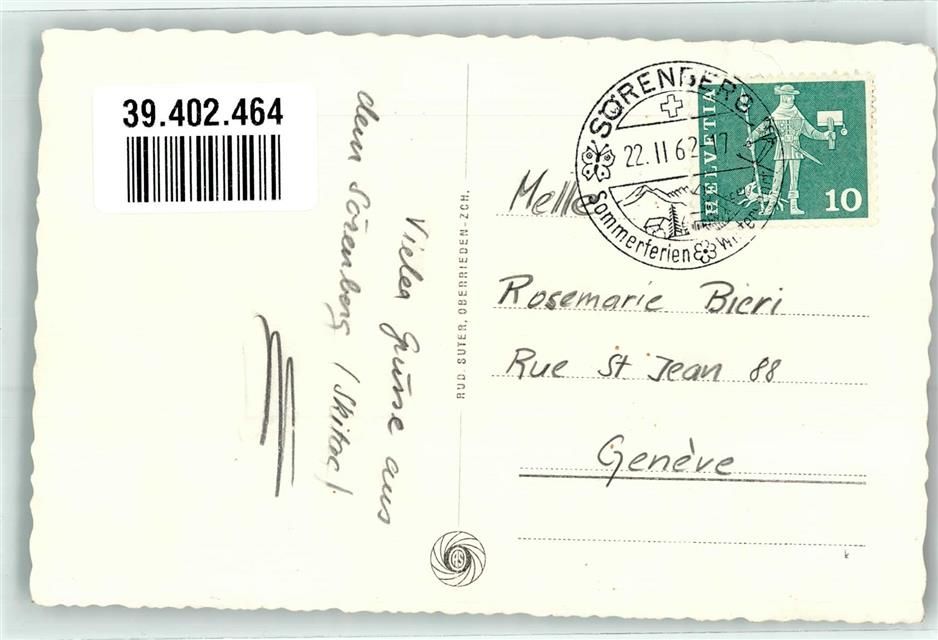 39.402.464
Vieler Grüsse aus
dem Sörenberg
RUD. SUTER, OBERRIEDEN-ZCH.
RS
SÖRENBERG
22. II 62-17
Sommerferien
HELVETIA
10
Melle
Rosemarie Bieri
Rue St Jean 88
Genève
k